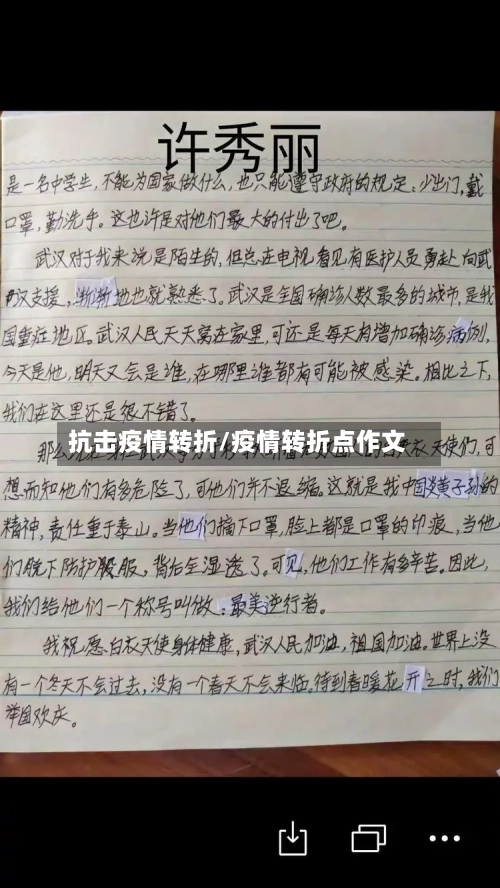 许秀丽
是一名中学生,不能为国家做什么,也只能遵守政府的规定:少出门,戴
口罩,勤洗手。这也许是对他们最大的付出了吧。
武汉对于我来说是陌生的,但总在电视看见有医护人员勇赴向武
汉支援,渐渐地也就熟悉了。武汉是全国确诊人数最多的城市,是我
国重症地区。武汉人民天天窝在家里,可还是每天有增加确诊病例,
今天是他,明天又会是谁,在哪里谁都有可能被感染。相比之下,
我们在这里还是很不错了。
抗击疫情转折/疫情转折点作文
那么 衣天使们,可
想而知他们有多危险了,可他们并不退缩。这就是我中国炎黄子孙的
精神,责任重于泰山。当他们摘下口罩,脸上都是口罩的印痕,当他
们脱下防护服,背后全湿透了。可见,他们工作有多辛苦。因此,
我们给他们一个称号叫做:最美逆行者。
我祝愿白衣天使身体健康,武汉人民加油,祖国加油。世界上没
有一个冬天不会过去,没有一个春天不会来临。待到春暖花开之时,我们
举国欢庆。